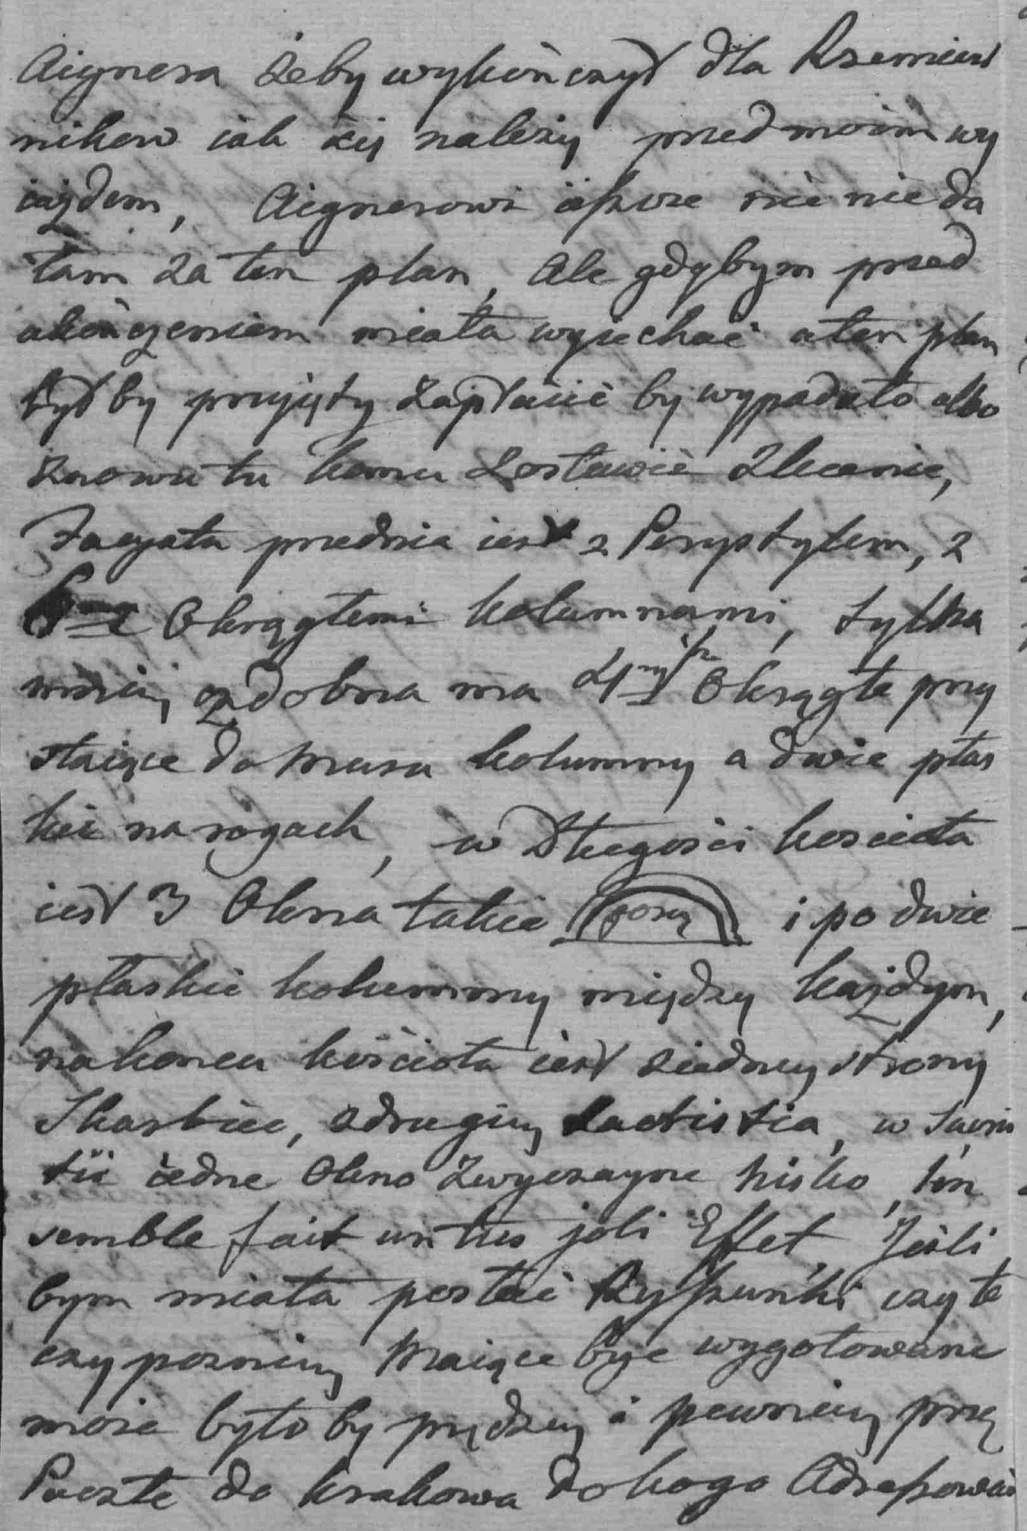 Aignera żeby wykończył dla Rzemieśl
nikow iak się należy przed moim wy
iazdem, Aignerowi ieszcze nic nie da
łam za ten plan, Ale gdybym przed
ukończeniem miała wyiechać a ten plan
był by przyięty zapłacić by wypadało albo
znowu tu komu zostawić zlecenie,
Facyata przednia iest z Perystylem, z
Okrągłemi kolumnami, tylko
mniey ozdobna ma 4 Okrągłe przy
staiące do muru kolumny a dwie płas
kie na rogach, w Długości kościoła
iest 3 Okna takie i po dwie
płaskie kolumny między każdym,
na koncu kościoła iest z iedney strony
Skarbiec, z drugiey Zacristia, w Sacris
tii iedne Okno zwyczayne nisko, l'en
semble fait un tres joli Effet, Jeśli
bym miała posłać Rysunki czy te
czy pozniey maiące być wygotowane
może było by prędzey i pewniey przez
Pocztę do Krakowa do kogo Adresować